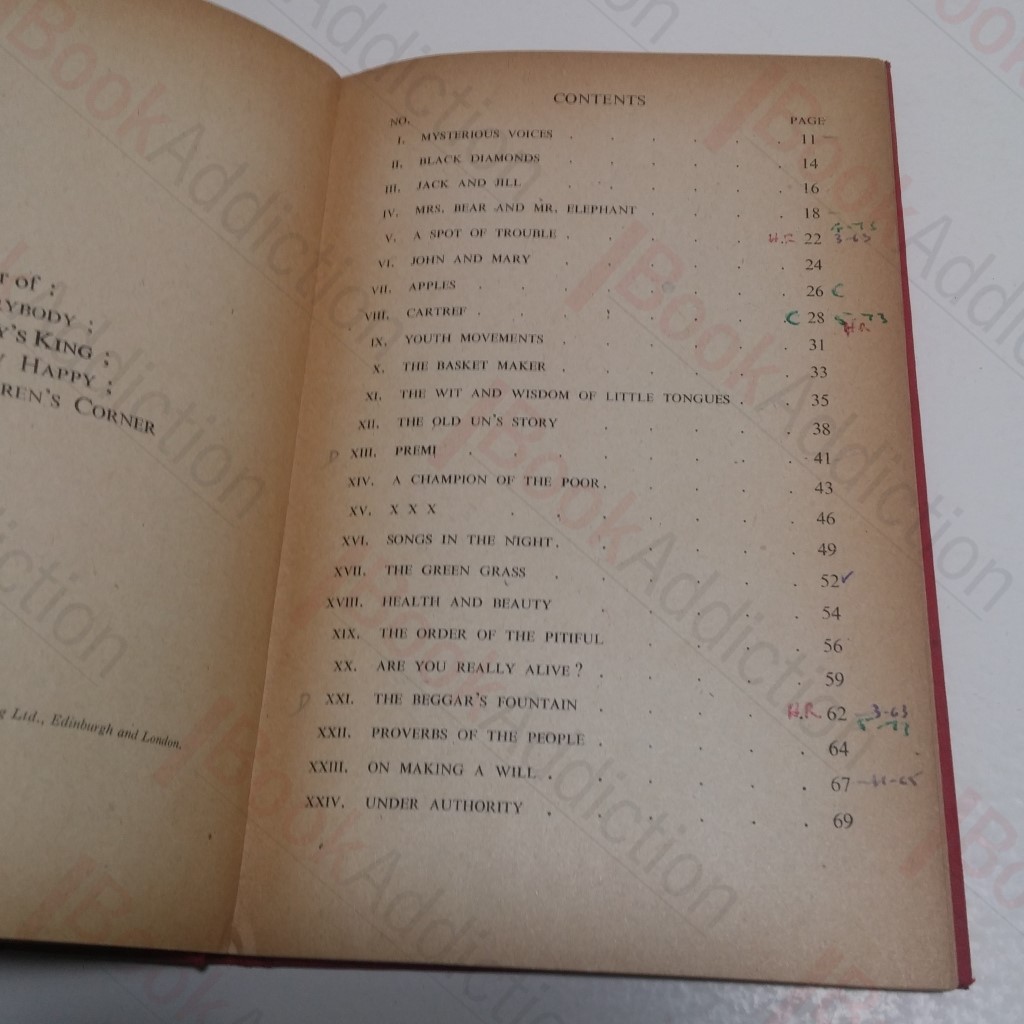 r of :
RYBODY ;
Y'S KING ;
HAPPY ;
REN'S CORNER
g Ltd., Edinburgh and London.
CONTENTS
NO. PAGE
I. MYSTERIOUS VOICES . . . . . . 11
II. BLACK DIAMONDS . . . . . . 14
III. JACK AND JILL . . . . . . 16
IV. MRS. BEAR AND MR. ELEPHANT . . . . 18
5-73
V. A SPOT OF TROUBLE . . . . . H.R. 22 3-63
VI. JOHN AND MARY . . . . . . 24
VII. APPLES . . . . . . . 26 C
VIII. CARTREF . . . . . . . C 28 5-73
H.R.
IX. YOUTH MOVEMENTS . . . . . . 31
X. THE BASKET MAKER . . . . . . 33
XI. THE WIT AND WISDOM OF LITTLE TONGUES . . 35
XII. THE OLD UN'S STORY . . . . . 38
P XIII. PREMI . . . . . . . . 41
XIV. A CHAMPION OF THE POOR . . . . . 43
XV. X X X . . . . . . . 46
XVI. SONGS IN THE NIGHT . . . . . . 49
XVII. THE GREEN GRASS . . . . . . 52 ✓
XVIII. HEALTH AND BEAUTY . . . . . 54
XIX. THE ORDER OF THE PITIFUL . . . . 56
XX. ARE YOU REALLY ALIVE ? . . . . . 59
P XXI. THE BEGGAR'S FOUNTAIN . . . . H.R. 62 3-63
5-73
XXII. PROVERBS OF THE PEOPLE . . . . . 64
XXIII. ON MAKING A WILL . . . . . . 67 - 11-65
XXIV. UNDER AUTHORITY . . . . . . 69
BookAddiction